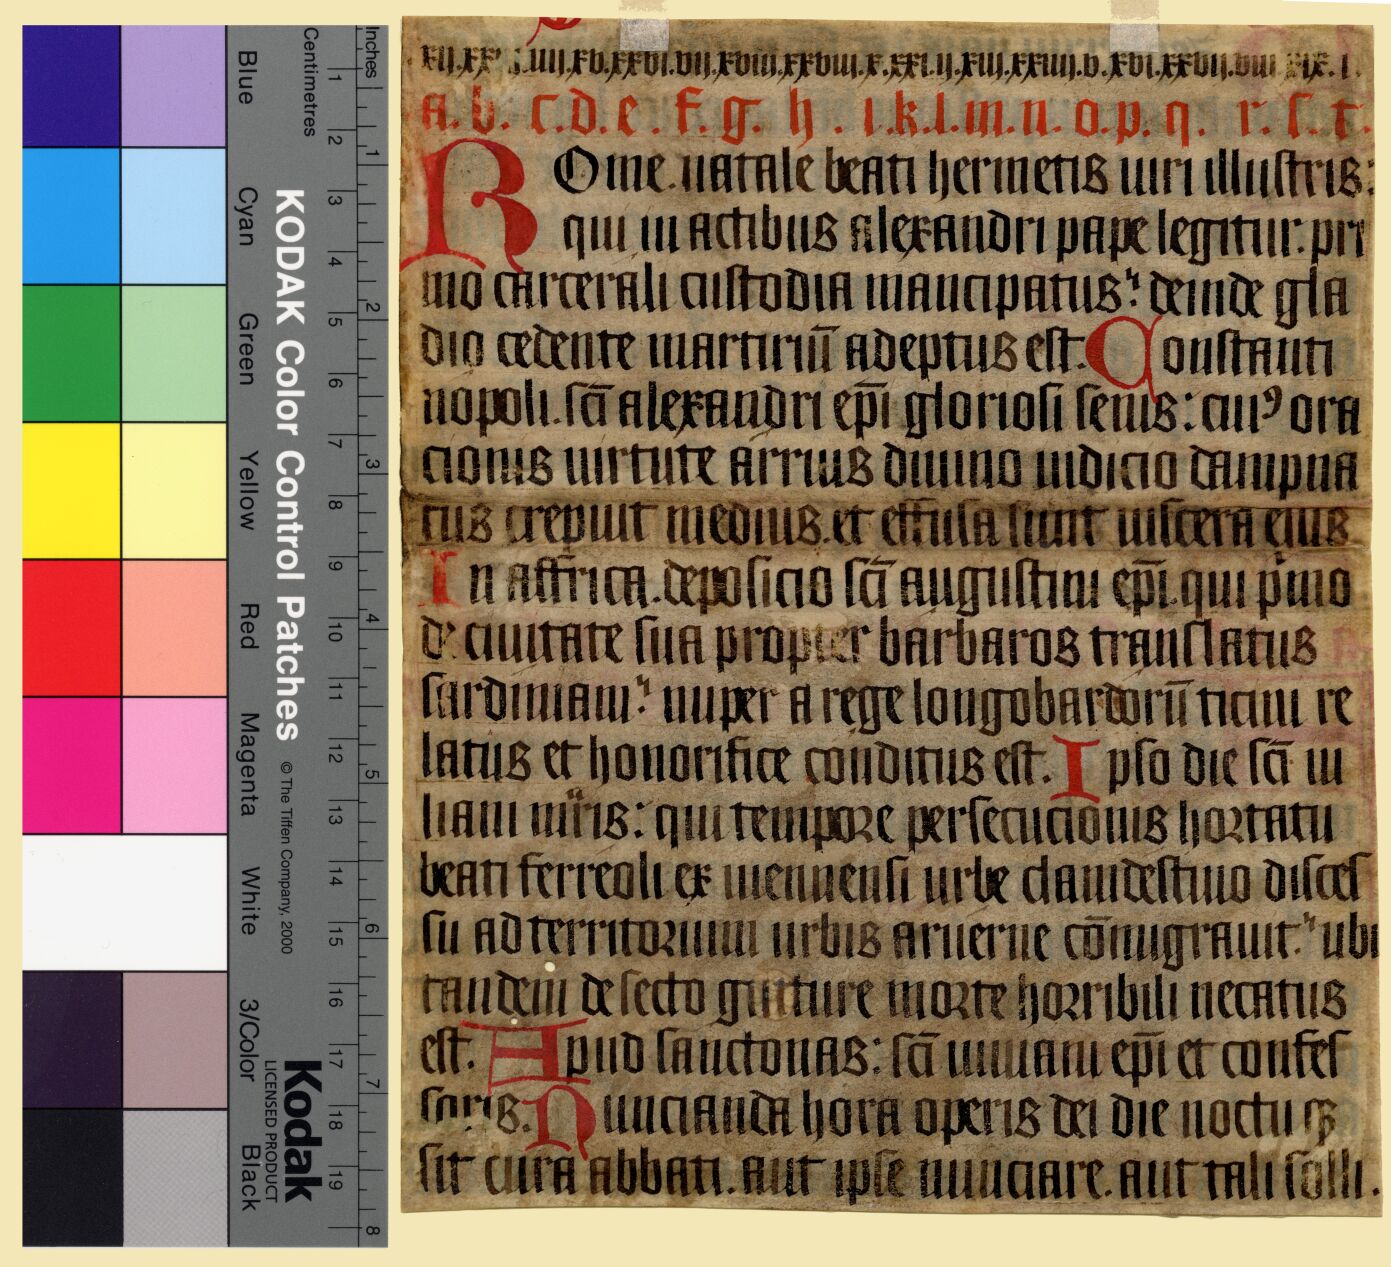 .xij.xx .iiij.xv.xxvi.vij.xviij.xxviij.x.xxi.ij.xiij.xxiiij.v.xvi.xxvij.viij xix.i.
a.b.c.d.e.f.g.h.i.k.l.m.n.o.p.q.r.s.t.
ROme.natale beati hermetis uiri illustris:
qui in actibus alexandri pape legitur.pri
mo carcerali custodia mancipatus: deinde gla
dio cedente martiriū adeptus est. Constanti
nopoli.sc̄i alexandri ep̄i gloriosi senis: cuiꝰ ora
cionis uirtute arrius diuino iudicio dampna
tus crepuit medius.et effusa sunt uiscera eius
In affrica.deposicio sc̄i augustini ep̄i.qui pͥmo
de ciuitate sua propter barbaros translatus
sardiniam: nuper a rege longobardorū ticini re
latus et honorifice conditus est. Ipso die sc̄i iu
liani mr̄is: qui tempore persecucionis hortatu
beati ferreoli ex uiennensi urbe clamdestino disces
su ad territorium urbis aruerne cōmigrauit: ubi
tandem desecto gutture morte horribili necatus
est. Apud sanctonas: sc̄i uiuiani ep̄i et confes
soris. Nuncianda hora operis dei die noctu qꝫ
sit cura abbati.aut ipse nunciare.aut tali solli.
Inches
Centimetres
1 2 3 4 5 6 7 8 9 10 11 12 13 14 15 16 17 18 19
1 2 3 4 5 6 7 8
KODAK Color Control Patches © The Tiffen Company, 2000
Kodak
LICENSED PRODUCT
Blue
Cyan
Green
Yellow
Red
Magenta
White
3/Color
Black